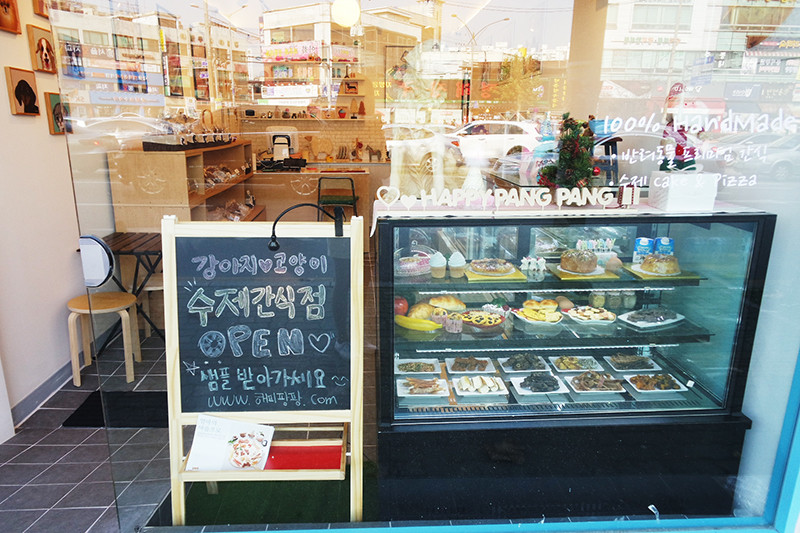 100% HandMade
반려동물 프리미엄 간식
수제 Cake & Pizza
HAPPY PANG PANG
강아지♡고양이
수제간식점
OPEN♡
샘플 받아가세요
www.해피팡팡.com